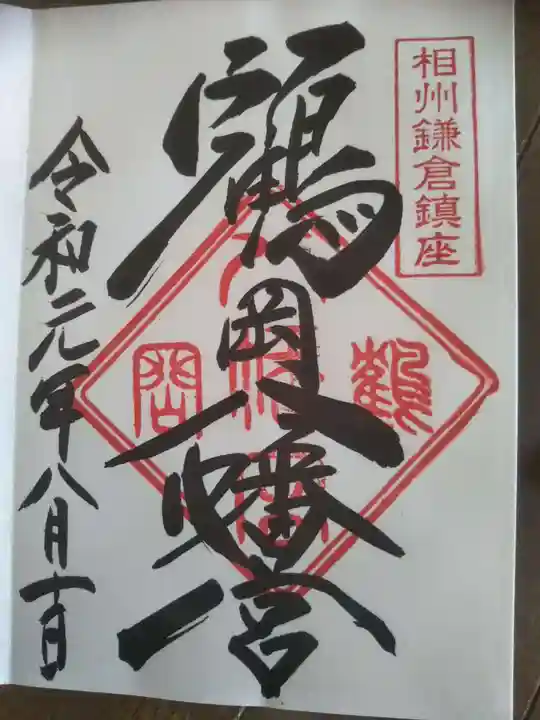 相州鎌倉鎮座
鶴岡八幡宮
鶴
岡
令和元年八月十日